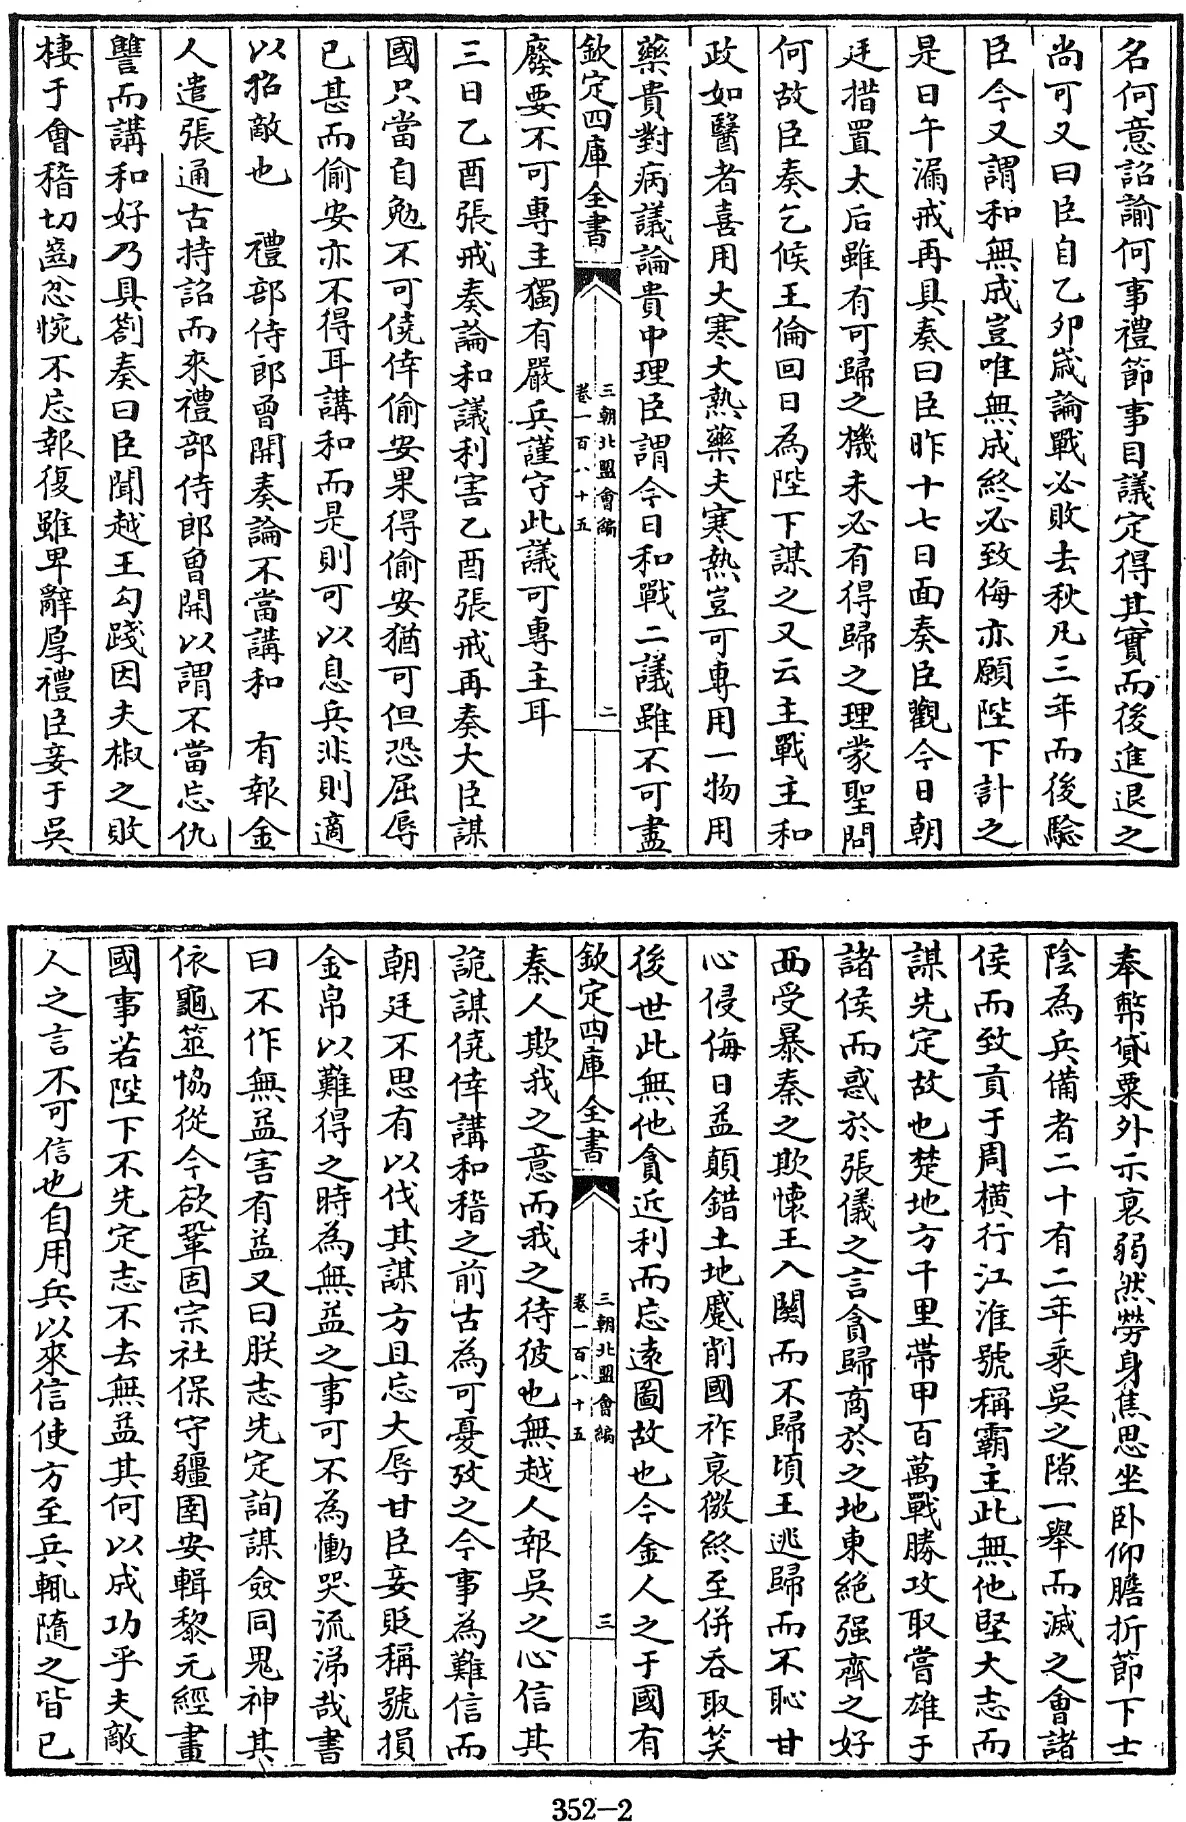 名何意詔諭何事禮節事目議定得其實而後進退之
尚可又曰臣自乙卯歲論戰必敗去秋凡三年而後驗
臣今又謂和無成豈唯無成終必致侮亦願陛下計之
是日午漏戒再具奏曰臣昨十七日面奏臣觀今日朝
廷措置太后雖有可歸之機未必有得歸之理蒙聖問
何故臣奏乞候王倫回日為陛下謀之又云主戰主和
政如醫者喜用大寒大熱藥夫寒熱豈可專用一物用
藥貴對病議論貴中理臣謂今日和戰二議雖不可盡
欽定四庫全書
三朝北盟會編
卷一百八十五
二
廢要不可專主獨有嚴兵謹守此議可專主耳
三日乙酉張戒奏論和議利害乙酉張戒再奏大臣謀
國只當自勉不可僥倖偷安果得偷安猶可但恐屈辱
已甚而偷安亦不得耳講和而是則可以息兵非則適
以招敵也　禮部侍郎曾開奏論不當講和　有報金
人遣張通古持詔而來禮部侍郎曾開以謂不當忘仇
讐而講和好乃具劄奏曰臣聞越王勾踐因夫椒之敗
棲于會稽切齒忿惋不忘報復雖卑辭厚禮臣妾于吳
奉幣貸粟外示衰弱然勞身焦思坐卧仰膽折節下士
陰為兵備者二十有二年乘吳之隙一舉而滅之會諸
侯而致貢于周橫行江淮號稱霸主此無他堅大志而
謀先定故也楚地方千里帶甲百萬戰勝攻取嘗雄于
諸侯而惑於張儀之言貪歸商於之地東絕强齊之好
西受暴秦之欺懷王入關而不歸頃王逃歸而不恥甘
心侵侮日益顛錯土地蹙削國祚衰微終至併吞取笑
後世此無他貪近利而忘遠圖故也今金人之于國有
欽定四庫全書
三朝北盟會編
卷一百八十五
三
秦人欺我之意而我之待彼也無越人報吳之心信其
詭謀僥倖講和稽之前古為可憂攷之今事為難信而
朝廷不思有以伐其謀方且忘大辱甘臣妾貶稱號損
金帛以難得之時為無益之事可不為慟哭流涕哉書
曰不作無益害有益又曰朕志先定詢謀僉同鬼神其
依龜筮協從今欲鞏固宗社保守疆圉安輯黎元經畫
國事若陛下不先定志不去無益其何以成功乎夫敵
人之言不可信也自用兵以來信使方至兵輒隨之皆已
352-2